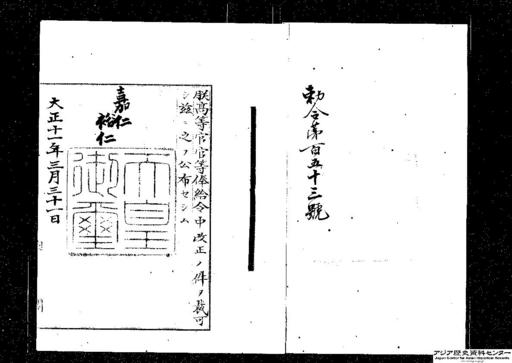 勅令第百五十三號
朕高等官官等俸給令中改正ノ件ヲ裁可
シ茲ニ之ヲ公布セシム
嘉仁
裕仁
天皇御璽
大正十一年三月三十一日
アジア歴史資料センター
Japan Center for Asian Historical Records